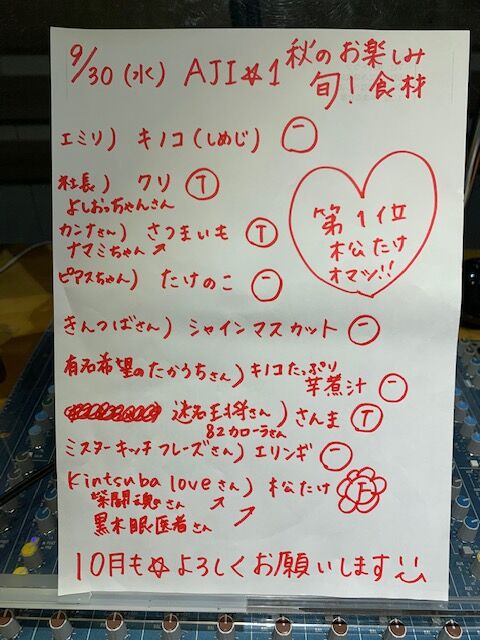 9/30(水) AJI☆1 秋のお楽しみ
旬!食材
エミリ) キノコ(しめじ) ー
社長) クリ T
よしおっちゃんさん
カンナさん) さつまいも T
ナマミちゃん ↗
ピアスちゃん) たけのこ ー
第1位
松たけ
オマツ!!
きんつばさん) シャインマスカット ー
有名希望のたかうちさん) キノコたっぷり
芋煮汁 ー
迷名王将さん) さんま T
82カローラさん
ミスターキッチフレーズさん) エリンギ ー
Kintsuba loveさん) 松たけ T
闘魂のさん ↗
黒木眼医者さん ↗
10月も☆よろしくお願いします